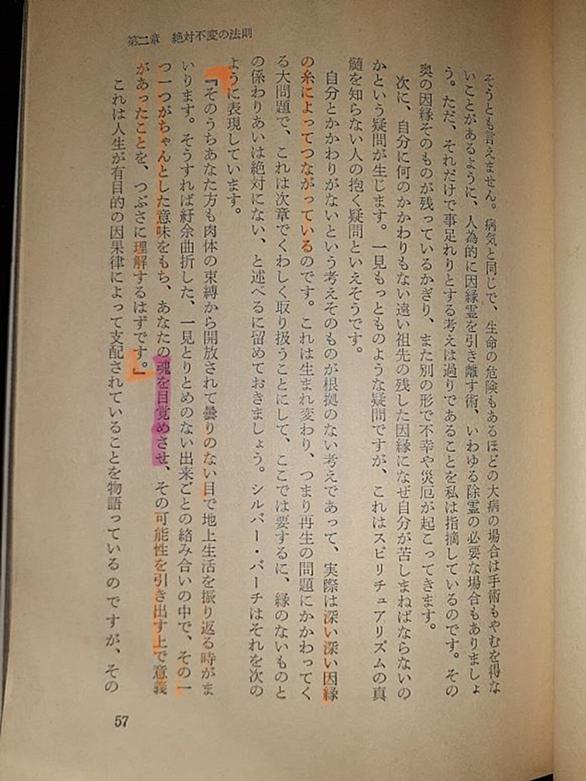 第二章　絶対不変の法則
そうとも言えません。病気と同じで、生命の危険もあるほどの大病の場合は手術もやむを得な
いことがあるように、人為的に因縁霊を引き離す術、いわゆる除霊の必要な場合もありましょ
う。ただ、それだけで事足れりとする考えは過りであることを私は指摘しているのです。その
奥の因縁そのものが残っているかぎり、また別の形で不幸や災厄が起こってきます。
次に、自分に何のかかわりもない遠い祖先の残した因縁になぜ自分が苦しまねばならないの
かという疑問が生じます。一見もっとものような疑問ですが、これはスピリチュアリズムの真
髄を知らない人の抱く疑問といえそうです。
自分とかかわりがないという考えそのものが根拠のない考えであって、実際は深い深い因縁
の糸によってつながっているのです。これは生まれ変わり、つまり再生の問題にかかわってく
る大問題で、これは次章でくわしく取り扱うことにして、ここでは要するに、縁のないものと
の係わりあいは絶対にない、と述べるに留めておきましょう。シルバー・バーチはそれを次の
ように表現しています。
『そのうちあなた方も肉体の束縛から開放されて曇りのない目で地上生活を振り返る時がま
いります。そうすれば紆余曲折した、一見とりとめのない出来ごとの絡み合いの中で、その一
つ一つがちゃんとした意味をもち、あなたの魂を目覚めさせ、その可能性を引き出す上で意義
があったことを、つぶさに理解するはずです。』
これは人生が有目的の因果律によって支配されていることを物語っているのですが、その
57